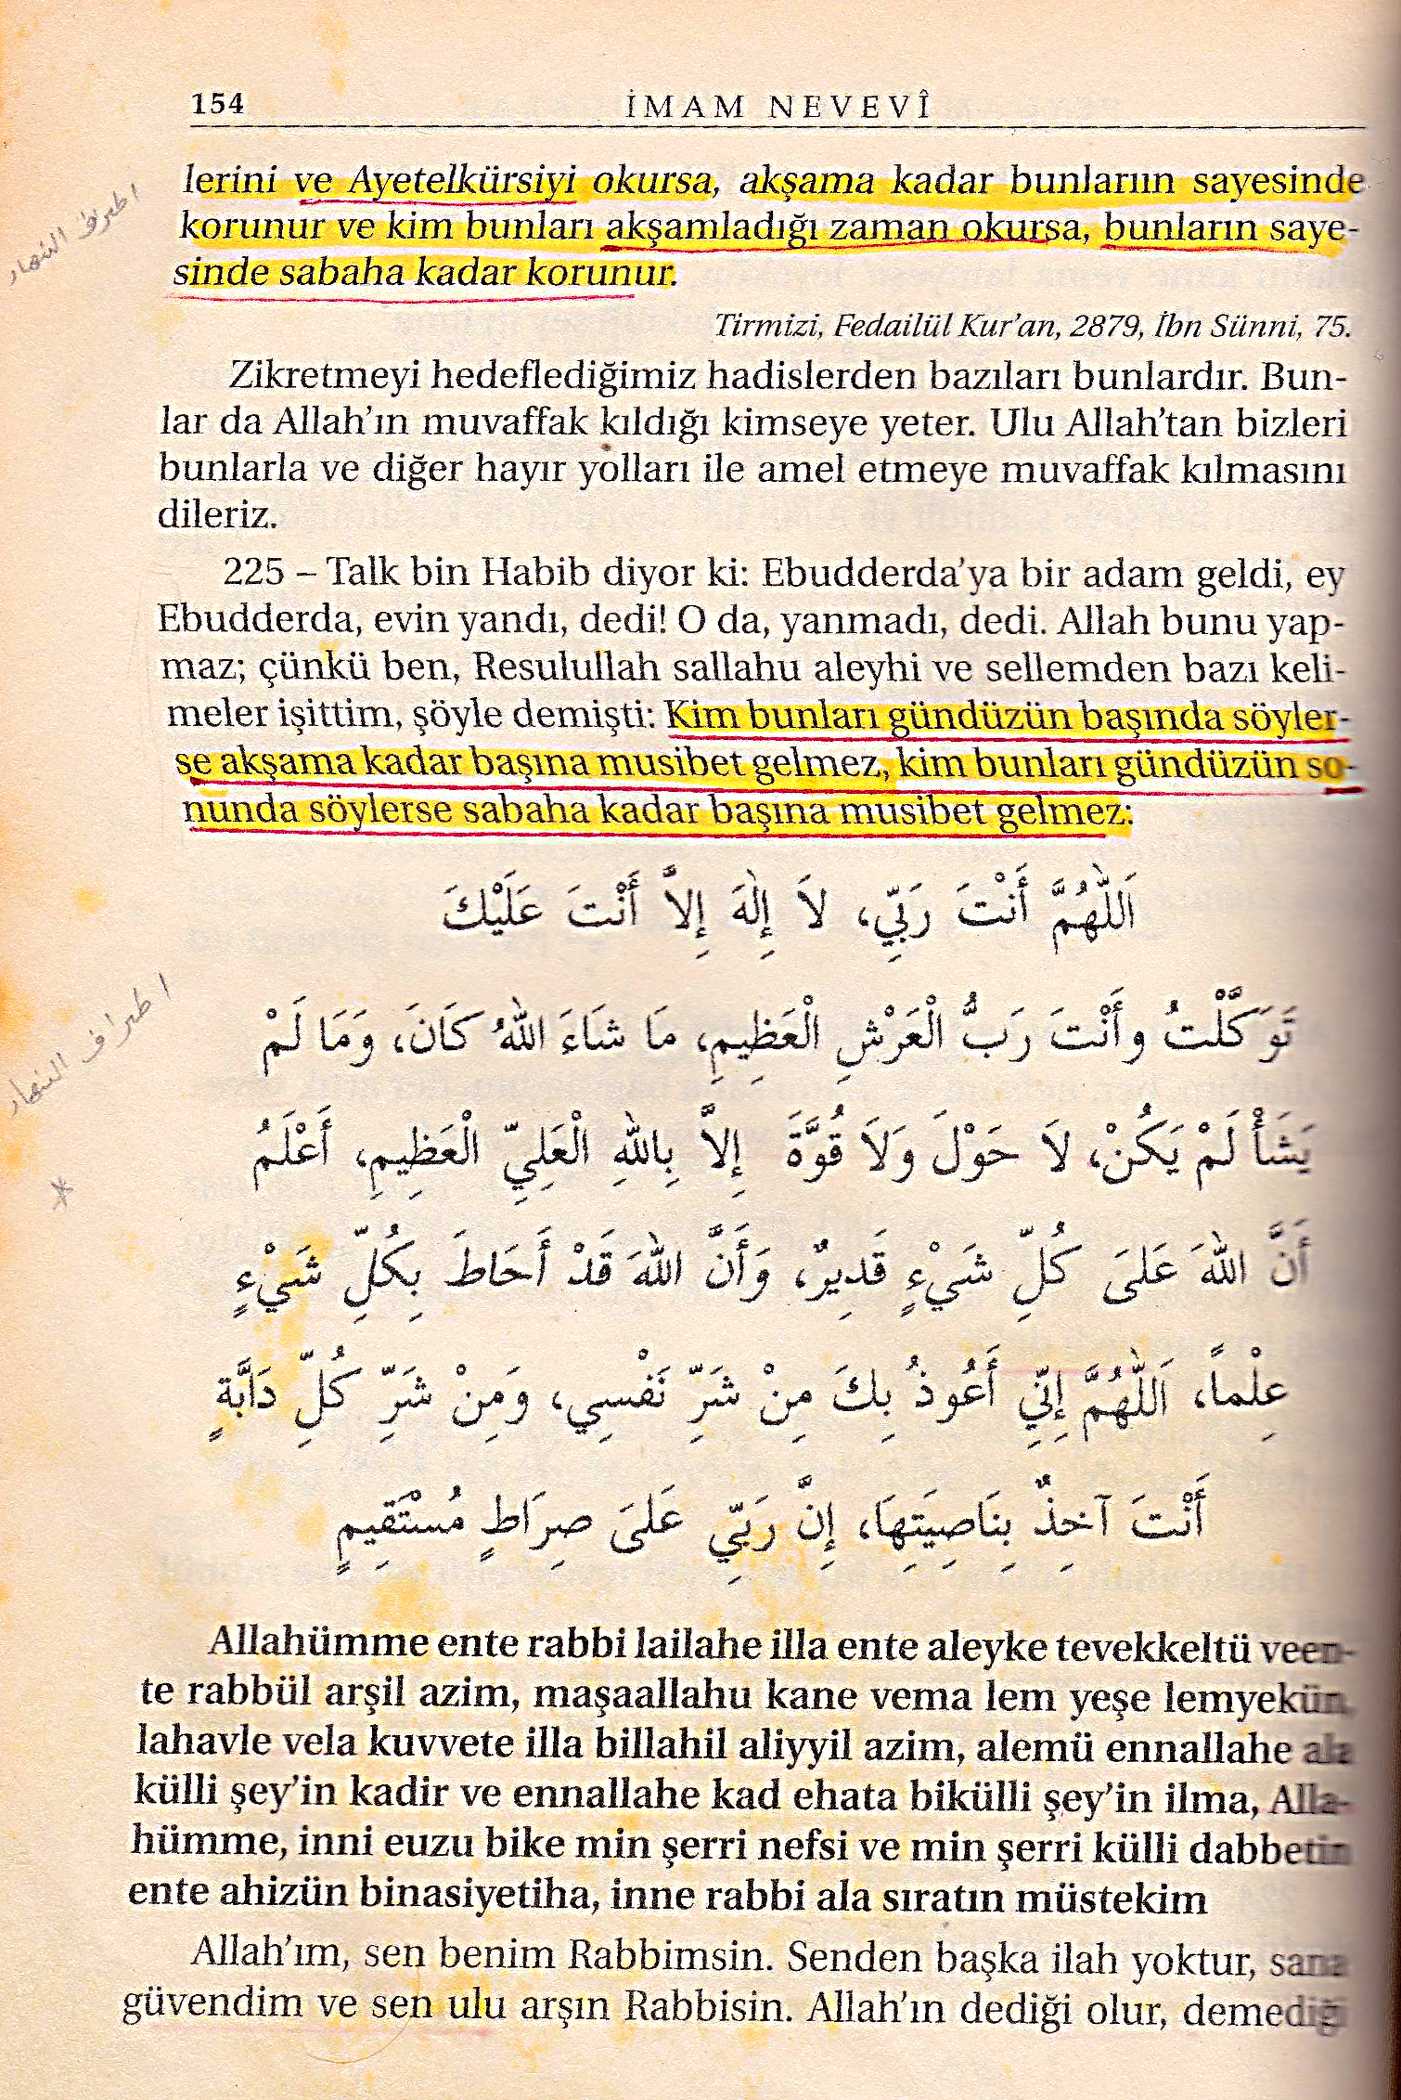 154
İMAM NEVEVÎ
lerini ve Ayetelkürsiyi okursa, akşama kadar bunların sayesinde
korunur ve kim bunları akşamladığı zaman okursa, bunların saye-
sinde sabaha kadar korunur.
اطراف النهار
Tirmizi, Fedailül Kur'an, 2879, İbn Sünni, 75.
Zikretmeyi hedeflediğimiz hadislerden bazıları bunlardır. Bun-
lar da Allah'ın muvaffak kıldığı kimseye yeter. Ulu Allah'tan bizleri
bunlarla ve diğer hayır yolları ile amel etmeye muvaffak kılmasını
dileriz.
225 – Talk bin Habib diyor ki: Ebudderda'ya bir adam geldi, ey
Ebudderda, evin yandı, dedi! O da, yanmadı, dedi. Allah bunu yap-
maz; çünkü ben, Resulullah sallahu aleyhi ve sellemden bazı keli-
meler işittim, şöyle demişti: Kim bunları gündüzün başında söyler-
se akşama kadar başına musibet gelmez, kim bunları gündüzün so-
nunda söylerse sabaha kadar başına musibet gelmez:
اَللّٰهُمَّ أَنْتَ رَبِّي، لاَ إِلٰهَ إِلاَّ أَنْتَ عَلَيْكَ
تَوَكَّلْتُ وأَنْتَ رَبُّ الْعَرْشِ الْعَظِيمِ، مَا شَاءَ اللهُ كَانَ، وَمَا لَمْ
يَشَأْ لَمْ يَكُنْ، لاَ حَوْلَ وَلاَ قُوَّةَ إِلاَّ بِاللهِ الْعَلِيِّ الْعَظِيمِ، أَعْلَمُ
أَنَّ اللهَ عَلىَ كُلِّ شَيْءٍ قَدِيرٌ، وَأَنَّ اللهَ قَدْ أَحَاطَ بِكُلِّ شَيْءٍ
عِلْماً، اَللّٰهُمَّ إِنِّي أَعُوذُ بِكَ مِنْ شَرِّ نَفْسِي، وَمِنْ شَرِّ كُلِّ دَابَّةٍ
أَنْتَ آخِذٌ بِنَاصِيَتِهَا، إِنَّ رَبِّي عَلىَ صِرَاطٍ مُسْتَقِيمٍ
اطراف النهار
*
Allahümme ente rabbi lailahe illa ente aleyke tevekkeltü veen-
te rabbül arşil azim, maşaallahu kane vema lem yeşe lemyekün
lahavle vela kuvvete illa billahil aliyyil azim, alemü ennallahe ala
külli şey'in kadir ve ennallahe kad ehata bikülli şey'in ilma, Alla-
hümme, inni euzu bike min şerri nefsi ve min şerri külli dabbetin
ente ahizün binasiyetiha, inne rabbi ala sıratın müstekim
Allah'ım, sen benim Rabbimsin. Senden başka ilah yoktur, sana
güvendim ve sen ulu arşın Rabbisin. Allah'ın dediği olur, demediği